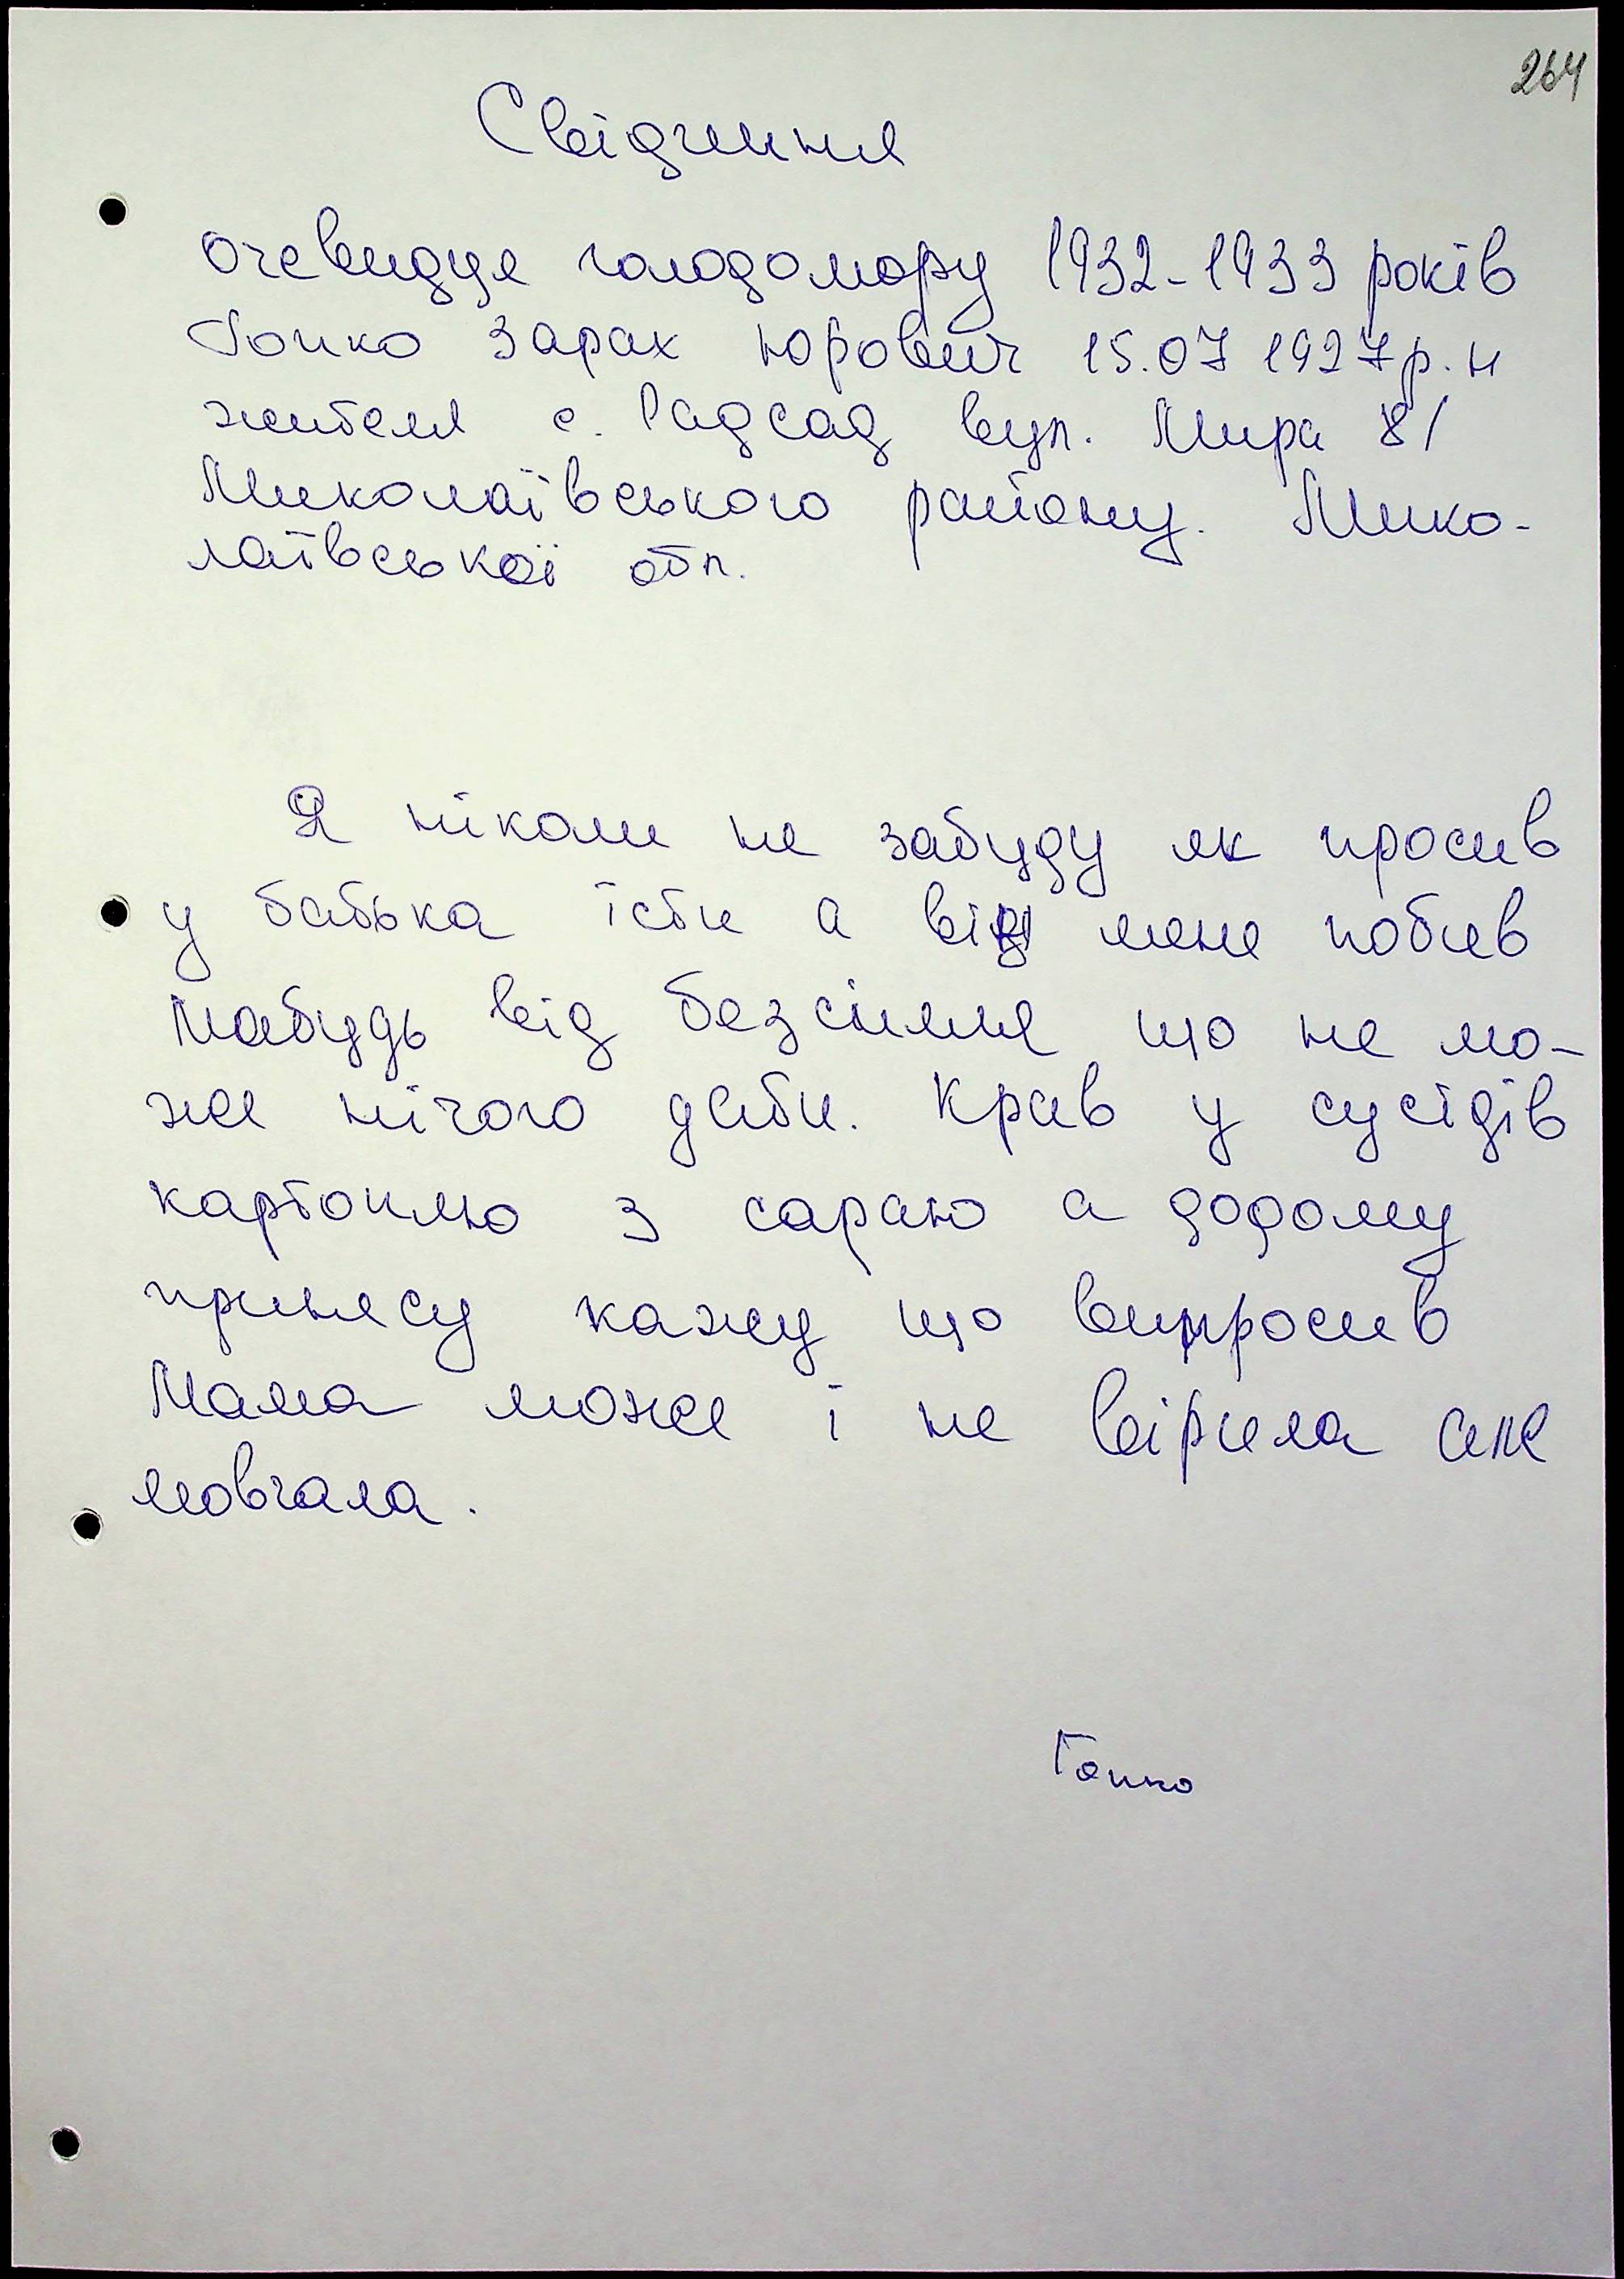 264
Свідчення
очевидця голодомору 1932-1933 років
Гопко Зарах Юрович 15.07 1927р. н
жителя с. Радсад вул. Мира 81
Миколаївського району. Мико-
лаївської обл.
Я ніколи не забуду як просив
у батька їсти а він мене побив
Мабудь від безсілля що не мо-
же нічого дати. Крав у сусідів
картоплю з сараю а додому
принесу кажу що випросив
Мама може і не вірила але
мовчала.
Гопко